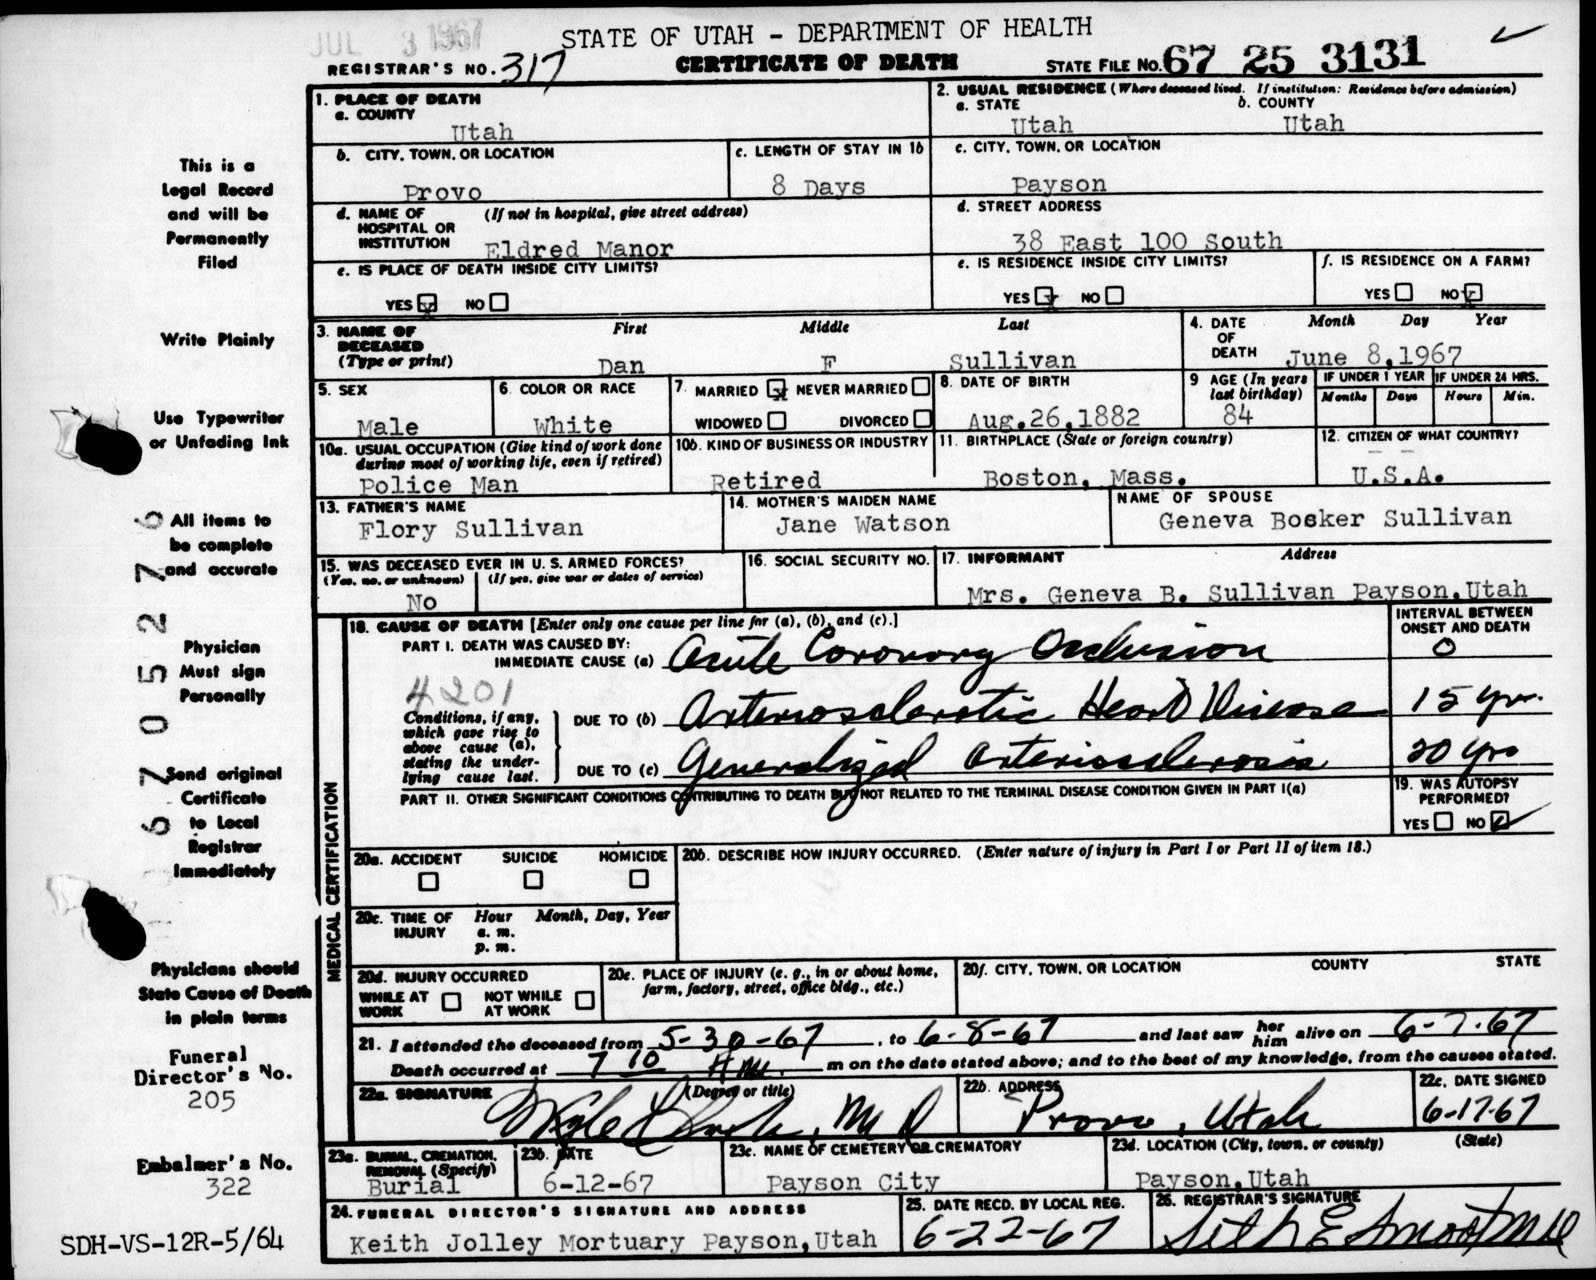 JUL 3 1967
STATE OF UTAH - DEPARTMENT OF HEALTH
REGISTRAR'S NO. 317
CERTIFICATE OF DEATH
STATE FILE NO. 67 25 3131
1. PLACE OF DEATH
a. COUNTY
Utah
2. USUAL RESIDENCE (Where deceased lived. If institution: Residence before admission)
a. STATE b. COUNTY
Utah Utah
b. CITY, TOWN, OR LOCATION
Provo
c. LENGTH OF STAY IN 1b
8 Days
c. CITY, TOWN, OR LOCATION
Payson
d. NAME OF HOSPITAL OR INSTITUTION (If not in hospital, give street address)
Eldred Manor
d. STREET ADDRESS
38 East 100 South
e. IS PLACE OF DEATH INSIDE CITY LIMITS?
YES x NO
e. IS RESIDENCE INSIDE CITY LIMITS?
YES x NO
f. IS RESIDENCE ON A FARM?
YES NO x
3. NAME OF DECEASED (Type or print)
First Middle Last
Dan F Sullivan
4. DATE OF DEATH
Month Day Year
June 8,1967
5. SEX
Male
6. COLOR OR RACE
White
7. MARRIED x NEVER MARRIED
WIDOWED DIVORCED
8. DATE OF BIRTH
Aug.26,1882
9 AGE (In years last birthday)
84
IF UNDER 1 YEAR
Months Days
IF UNDER 24 HRS.
Hours Min.
10a. USUAL OCCUPATION (Give kind of work done during most of working life, even if retired)
Police Man
10b. KIND OF BUSINESS OR INDUSTRY
Retired
11. BIRTHPLACE (State or foreign country)
Boston, Mass.
12. CITIZEN OF WHAT COUNTRY?
U.S.A.
13. FATHER'S NAME
Flory Sullivan
14. MOTHER'S MAIDEN NAME
Jane Watson
NAME OF SPOUSE
Geneva Bosker Sullivan
15. WAS DECEASED EVER IN U. S. ARMED FORCES?
(Yes, no, or unknown) (If yes, give war or dates of service)
No
16. SOCIAL SECURITY NO.
17. INFORMANT Address
Mrs. Geneva B. Sullivan Payson,Utah
MEDICAL CERTIFICATION
18. CAUSE OF DEATH [Enter only one cause per line for (a), (b), and (c).]
INTERVAL BETWEEN ONSET AND DEATH
PART I. DEATH WAS CAUSED BY:
IMMEDIATE CAUSE (a) Acute Coronary Occlusion 0
4201
Conditions, if any, which gave rise to above cause (a), stating the underlying cause last.
DUE TO (b) Arteriosclerotic Heart Disease 15 yrs.
DUE TO (c) Generalized Arteriosclerosis 20 yrs
PART II. OTHER SIGNIFICANT CONDITIONS CONTRIBUTING TO DEATH BUT NOT RELATED TO THE TERMINAL DISEASE CONDITION GIVEN IN PART I(a)
19. WAS AUTOPSY PERFORMED?
YES NO ✓
20a. ACCIDENT SUICIDE HOMICIDE
20b. DESCRIBE HOW INJURY OCCURRED. (Enter nature of injury in Part I or Part II of item 18.)
20c. TIME OF INJURY Hour a. m. p. m. Month, Day, Year
20d. INJURY OCCURRED
WHILE AT WORK NOT WHILE AT WORK
20e. PLACE OF INJURY (e. g., in or about home, farm, factory, street, office bldg., etc.)
20f. CITY, TOWN, OR LOCATION COUNTY STATE
21. I attended the deceased from 5-30-67, to 6-8-67 and last saw her him alive on 6-7-67
Death occurred at 7 10 A m. m on the date stated above; and to the best of my knowledge, from the causes stated.
22a. SIGNATURE (Degree or title)
M D
22b. ADDRESS
Provo, Utah
22c. DATE SIGNED
6-17-67
23a. BURIAL, CREMATION, REMOVAL (Specify)
Burial
23b. DATE
6-12-67
23c. NAME OF CEMETERY OR CREMATORY
Payson City
23d. LOCATION (City, town, or county) (State)
Payson,Utah
24. FUNERAL DIRECTOR'S SIGNATURE AND ADDRESS
Keith Jolley Mortuary Payson,Utah
25. DATE RECD. BY LOCAL REG.
6-22-67
26. REGISTRAR'S SIGNATURE
Seth E Smoot MD
This is a
Legal Record
and will be
Permanently
Filed
Write Plainly
Use Typewriter
or Unfading Ink
All items to
be complete
and accurate
Physician
Must sign
Personally
Send original
Certificate
to Local
Registrar
Immediately
Physicians should
State Cause of Death
in plain terms
Funeral
Director's No.
205
Embalmer's No.
322
SDH-VS-12R-5/64
67052776